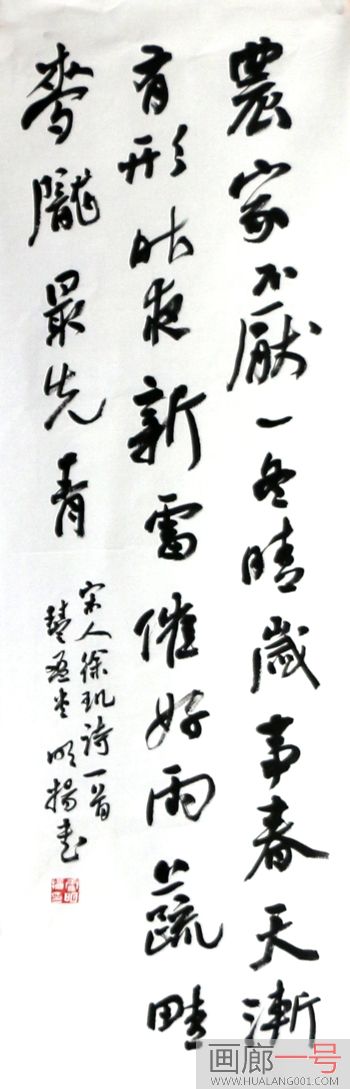 農家不厭一冬晴歲事春天漸
有形昨夜新雷催好雨蔬畦
麥隴最先青
宋人徐玑詩一首
明揚書
画廊一号
WWW.HUALANG001.COM